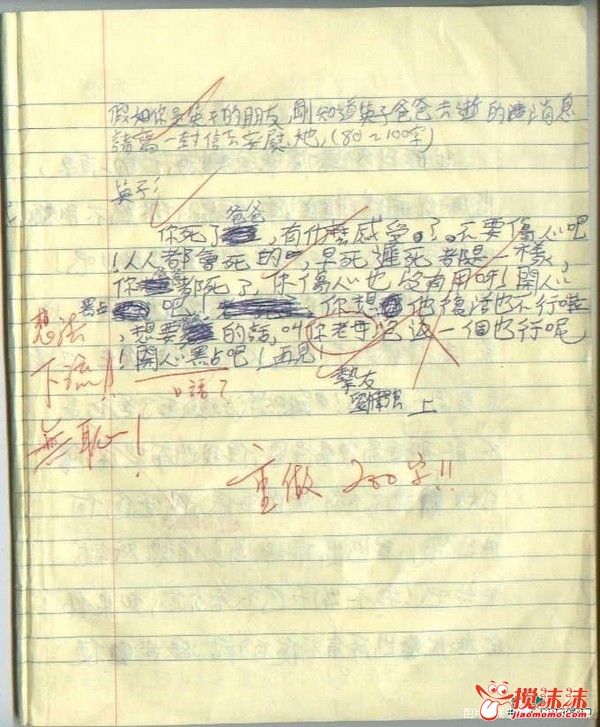 假如你是英子的朋友,剛知道英子爸爸去逝的消息
請寫一封信去安慰她,(80~100字)
英子:
你死了爸爸,有什麼感受。了。不要傷心吧
!人人都會死的,早死遲死都是一樣,
你爸爸都死了,你傷心也沒有用呀!開心
點吧!你想他復活也不行啦
,想要的話,叫你老母 過一個也行呢
!開心點吧!再見!
摯友
上
想法
下流!!
無恥!
口語?
重做 200字!!
搅沫沫
jiaomomo.com